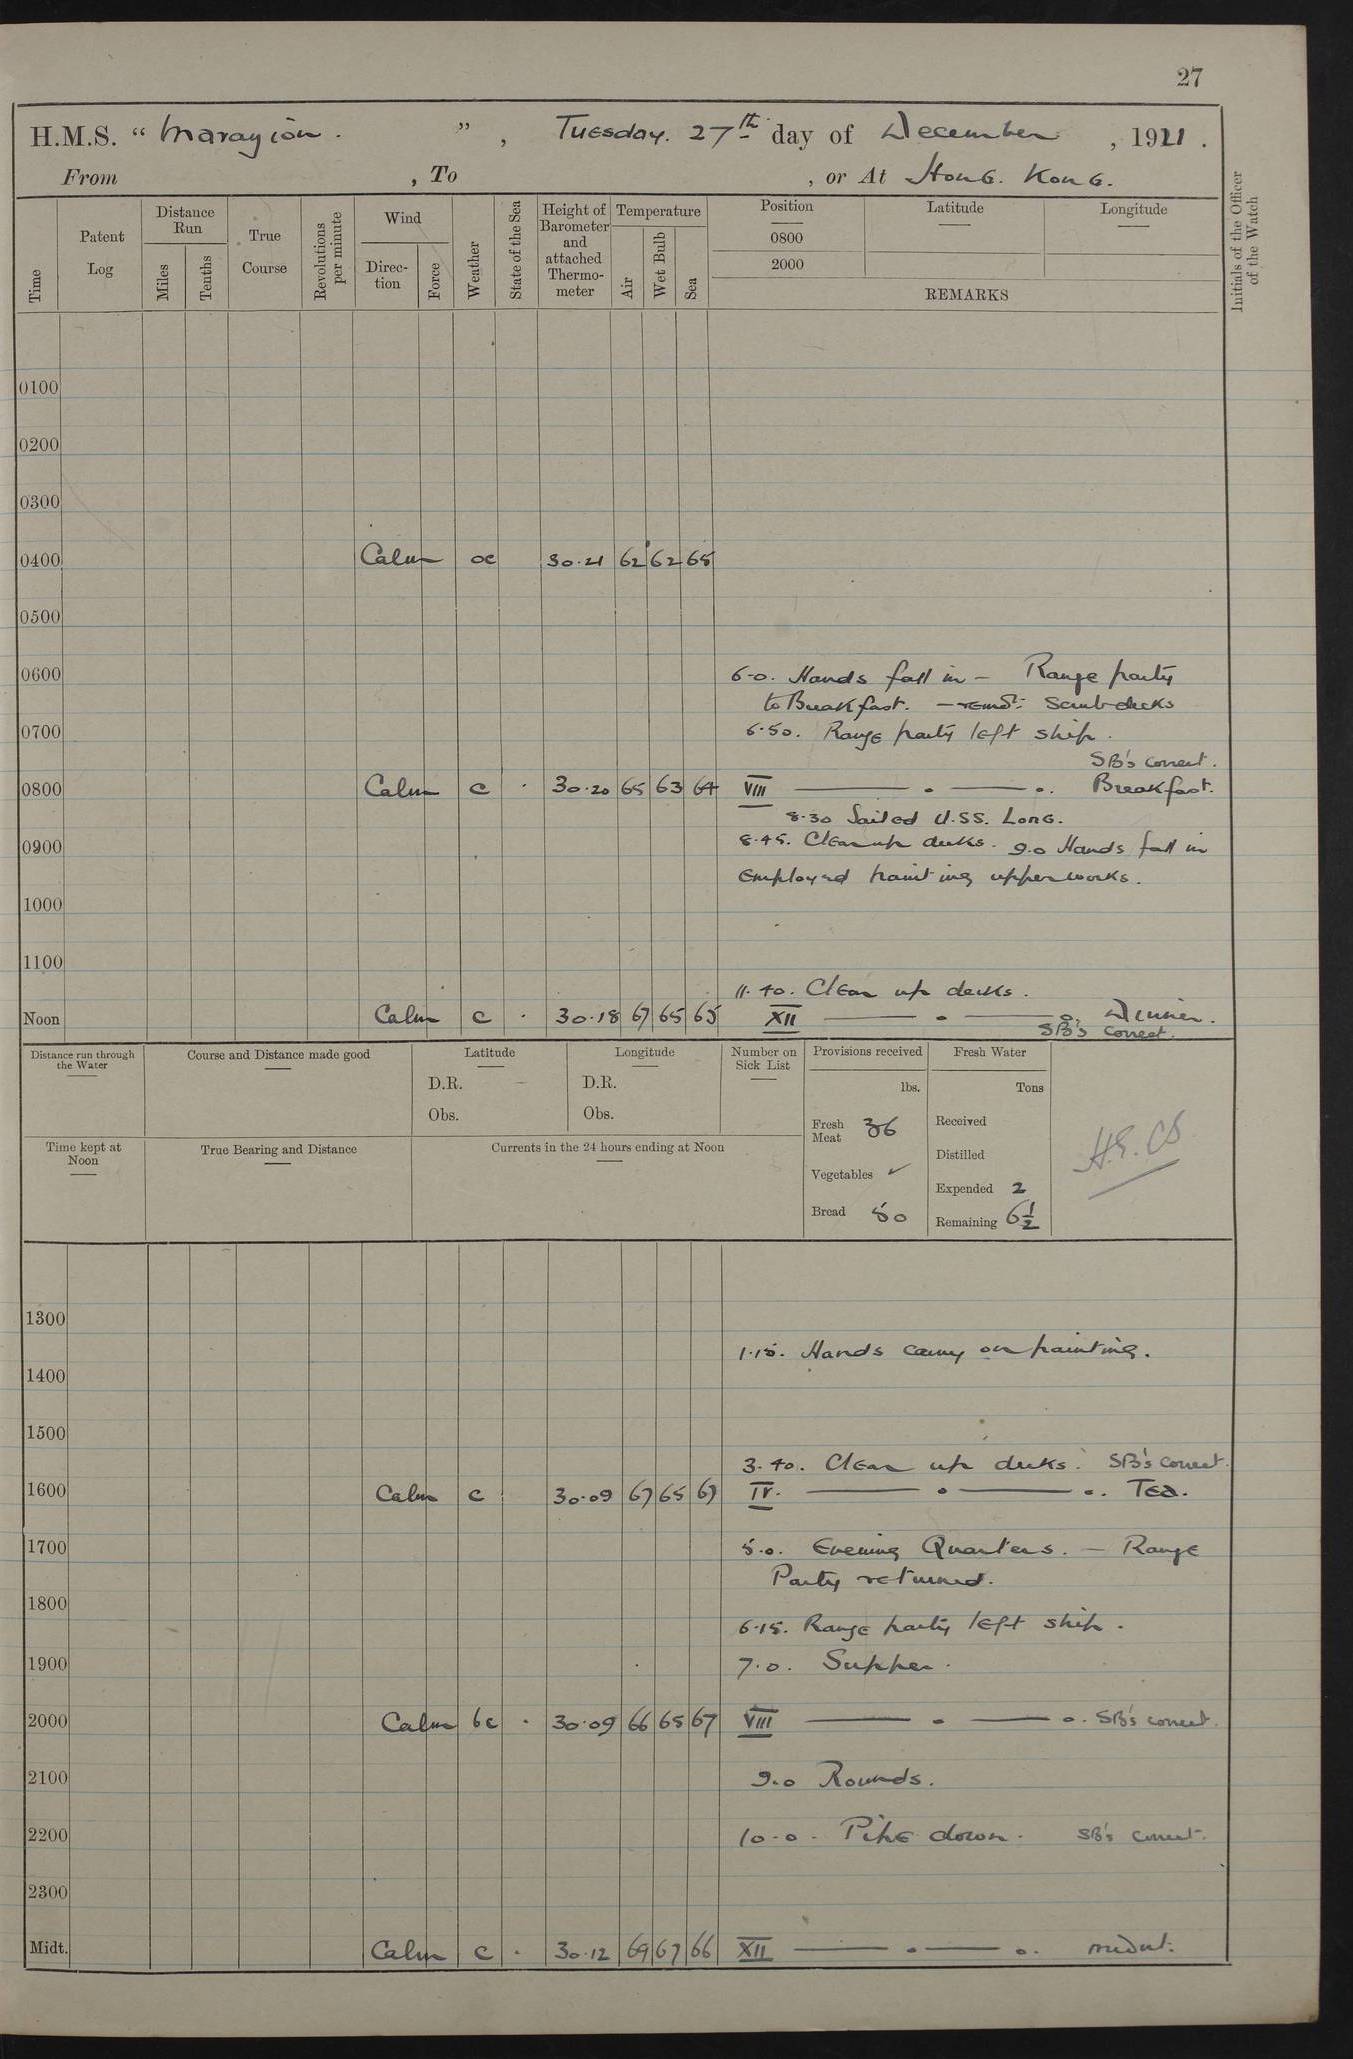 27
H.M.S. “ Marazion . ” , Tuesday. 27th day of December , 1921 .
From , To , or At Hong. Kong.
Time
Patent Log
Distance Run
Miles
Tenths
True Course
Revolutions per minute
Wind
Direc- tion
Force
Weather
State of the Sea
Height of Barometer and attached Thermo- meter
Temperature
Air
Wet Bulb
Sea
Position
0800
2000
Latitude
Longitude
REMARKS
Initials of the Officer of the Watch
0100
0200
0300
0400 Calm oc 30.21 62 62 65
0500
0600 6-0. Hands fall in – Range party
to Breakfast. – remdr: Scrub decks
0700 6.50. Range party left ship.
SB's correct.
0800 Calm c . 30.20 65 63 64 VIII —— o —— o. Breakfast.
8.30 Sailed U.SS. Long.
0900 8.45. Clear up decks. 9.0 Hands fall in
Employed painting upperworks.
1000
1100
11.40. Clear up decks.
Noon Calm c . 30.18 67 65 65 XII —— o —— o. Dinner.
SB's correct.
Distance run through the Water
Course and Distance made good
Latitude
D.R.
Obs.
Longitude
D.R.
Obs.
Number on Sick List
Provisions received
lbs.
Fresh Meat 36
Vegetables ✓
Bread 50
Fresh Water
Tons
Received
Distilled
Expended 2
Remaining 6½
Time kept at Noon
True Bearing and Distance
Currents in the 24 hours ending at Noon
1300
1.15. Hands carry on painting.
1400
1500
3.40. Clear up decks. SB's correct.
1600 Calm c 30.09 67 65 67 IV. —— o —— o. Tea.
1700 5.0. Evening Quarters. – Range
Party returned.
1800
6.15. Range party left ship.
1900 7.0. Supper.
2000 Calm bc . 30.09 66 65 67 VIII —— o —— o. SB's correct.
2100 9.0 Rounds.
2200 10-0. Pipe down. SB's correct.
2300
Midt. Calm c . 30.12 69 67 66 XII —— o —— o. midnt.